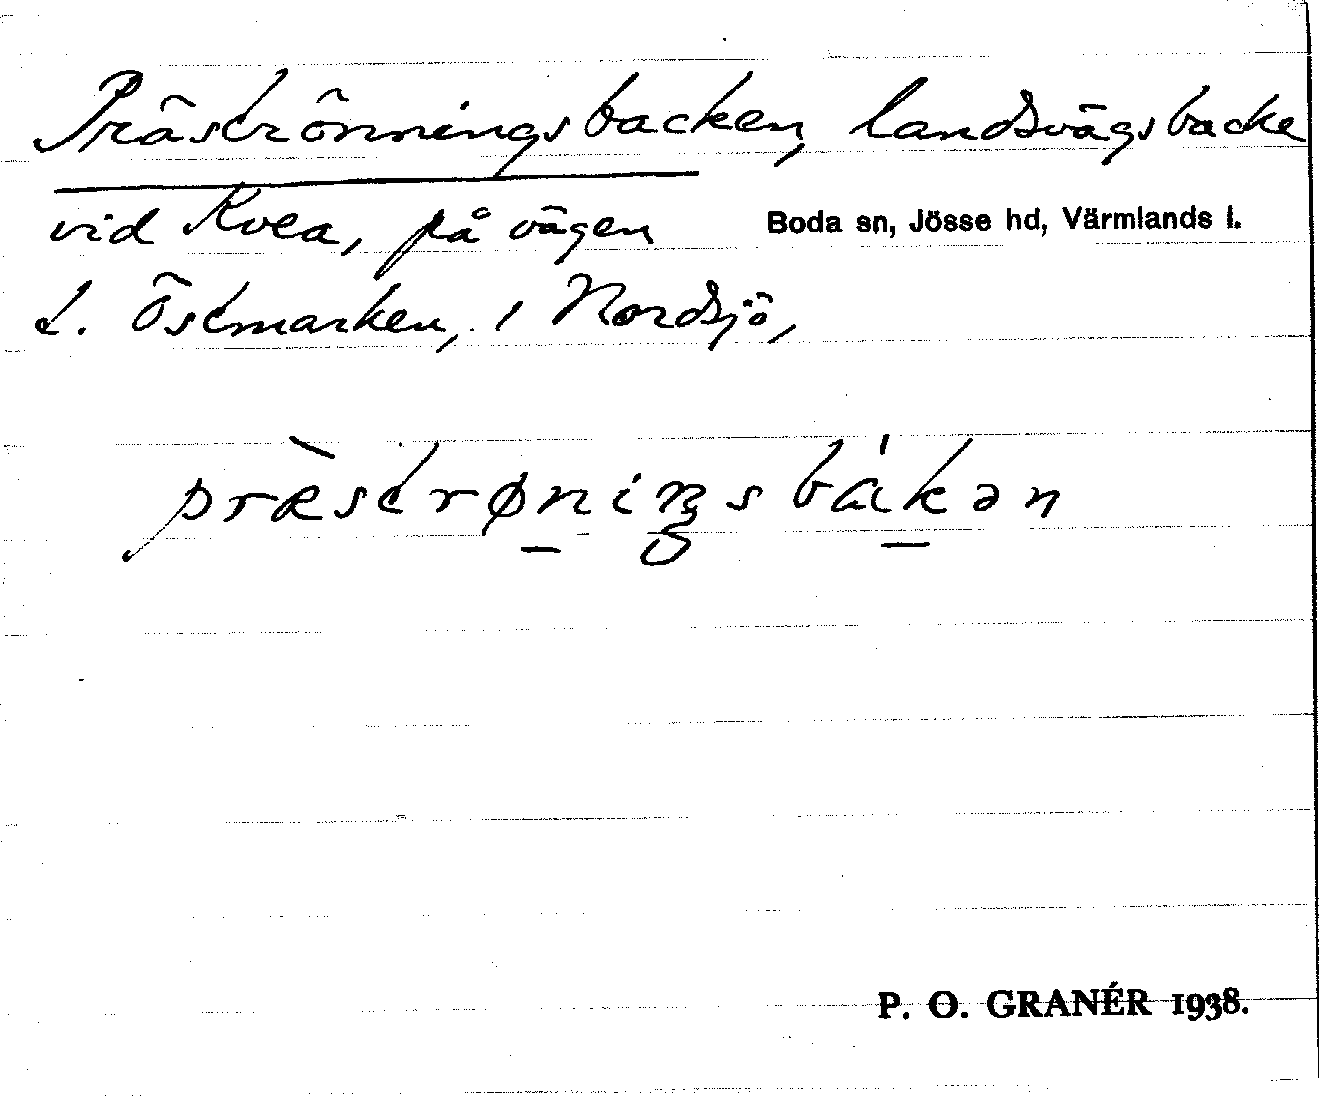 Präströnningsbacken, landsvägsbacke
vid Kvea, på vägen Boda sn, Jösse hd, Värmlands l.
t. Östmarken, i Nordsjö,
præstrøniŋsbakən
P. O. GRANÉR 1938.